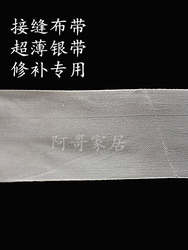 接缝布带
超薄银带
修补专用
阿哥家居